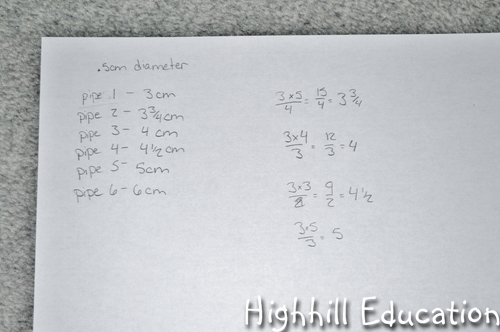 .5cm diameter
pipe 1 - 3cm
pipe 2 - 3 3/4 cm
pipe 3 - 4 cm
pipe 4 - 4 1/2 cm
pipe 5 - 5cm
pipe 6 - 6cm
3×5/4 = 15/4 = 3 3/4
3×4/3 = 12/3 = 4
3×3/2 = 9/2 = 4 1/2
3×5/3 = 5
Highhill Education